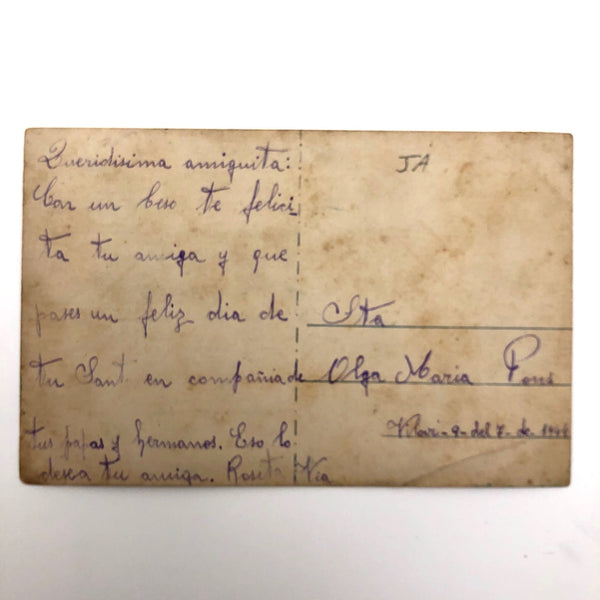 Queridisima amiguita:
Con un beso te felici
ta tu amiga y que
pases un feliz dia de
tu Sant en compañia de
tus papas y hermanos. Eso lo
desea tu amiga. Roseta Vea
JA
Sta
Olga Maria Pons
9 - del 7 - de